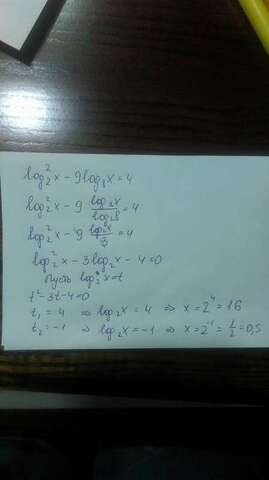 log₂²x - 9log₈x = 4
log₂²x - 9 log₂x/log₂8 = 4
log₂²x - 9 log₂x/3 = 4
log₂²x - 3log₂x - 4 = 0
Пусть log₂x = t
t² - 3t - 4 = 0
t₁ = 4 ⇒ log₂x = 4 ⇒ x = 2⁴ = 16
t₂ = -1 ⇒ log₂x = -1 ⇒ x = 2⁻¹ = 1/2 = 0,5